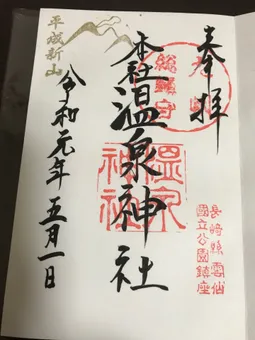 奉拝
長崎縣雲仙
國立公園鎮座
総鎮守
本社温泉神社
温泉
神社
平成新山
令和元年五月一日